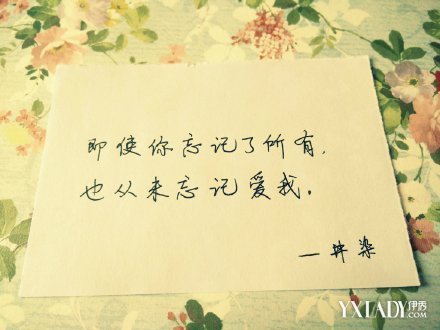 即使你忘记了所有,
也从来忘记爱我。
—井染
YXLADY伊秀
.com